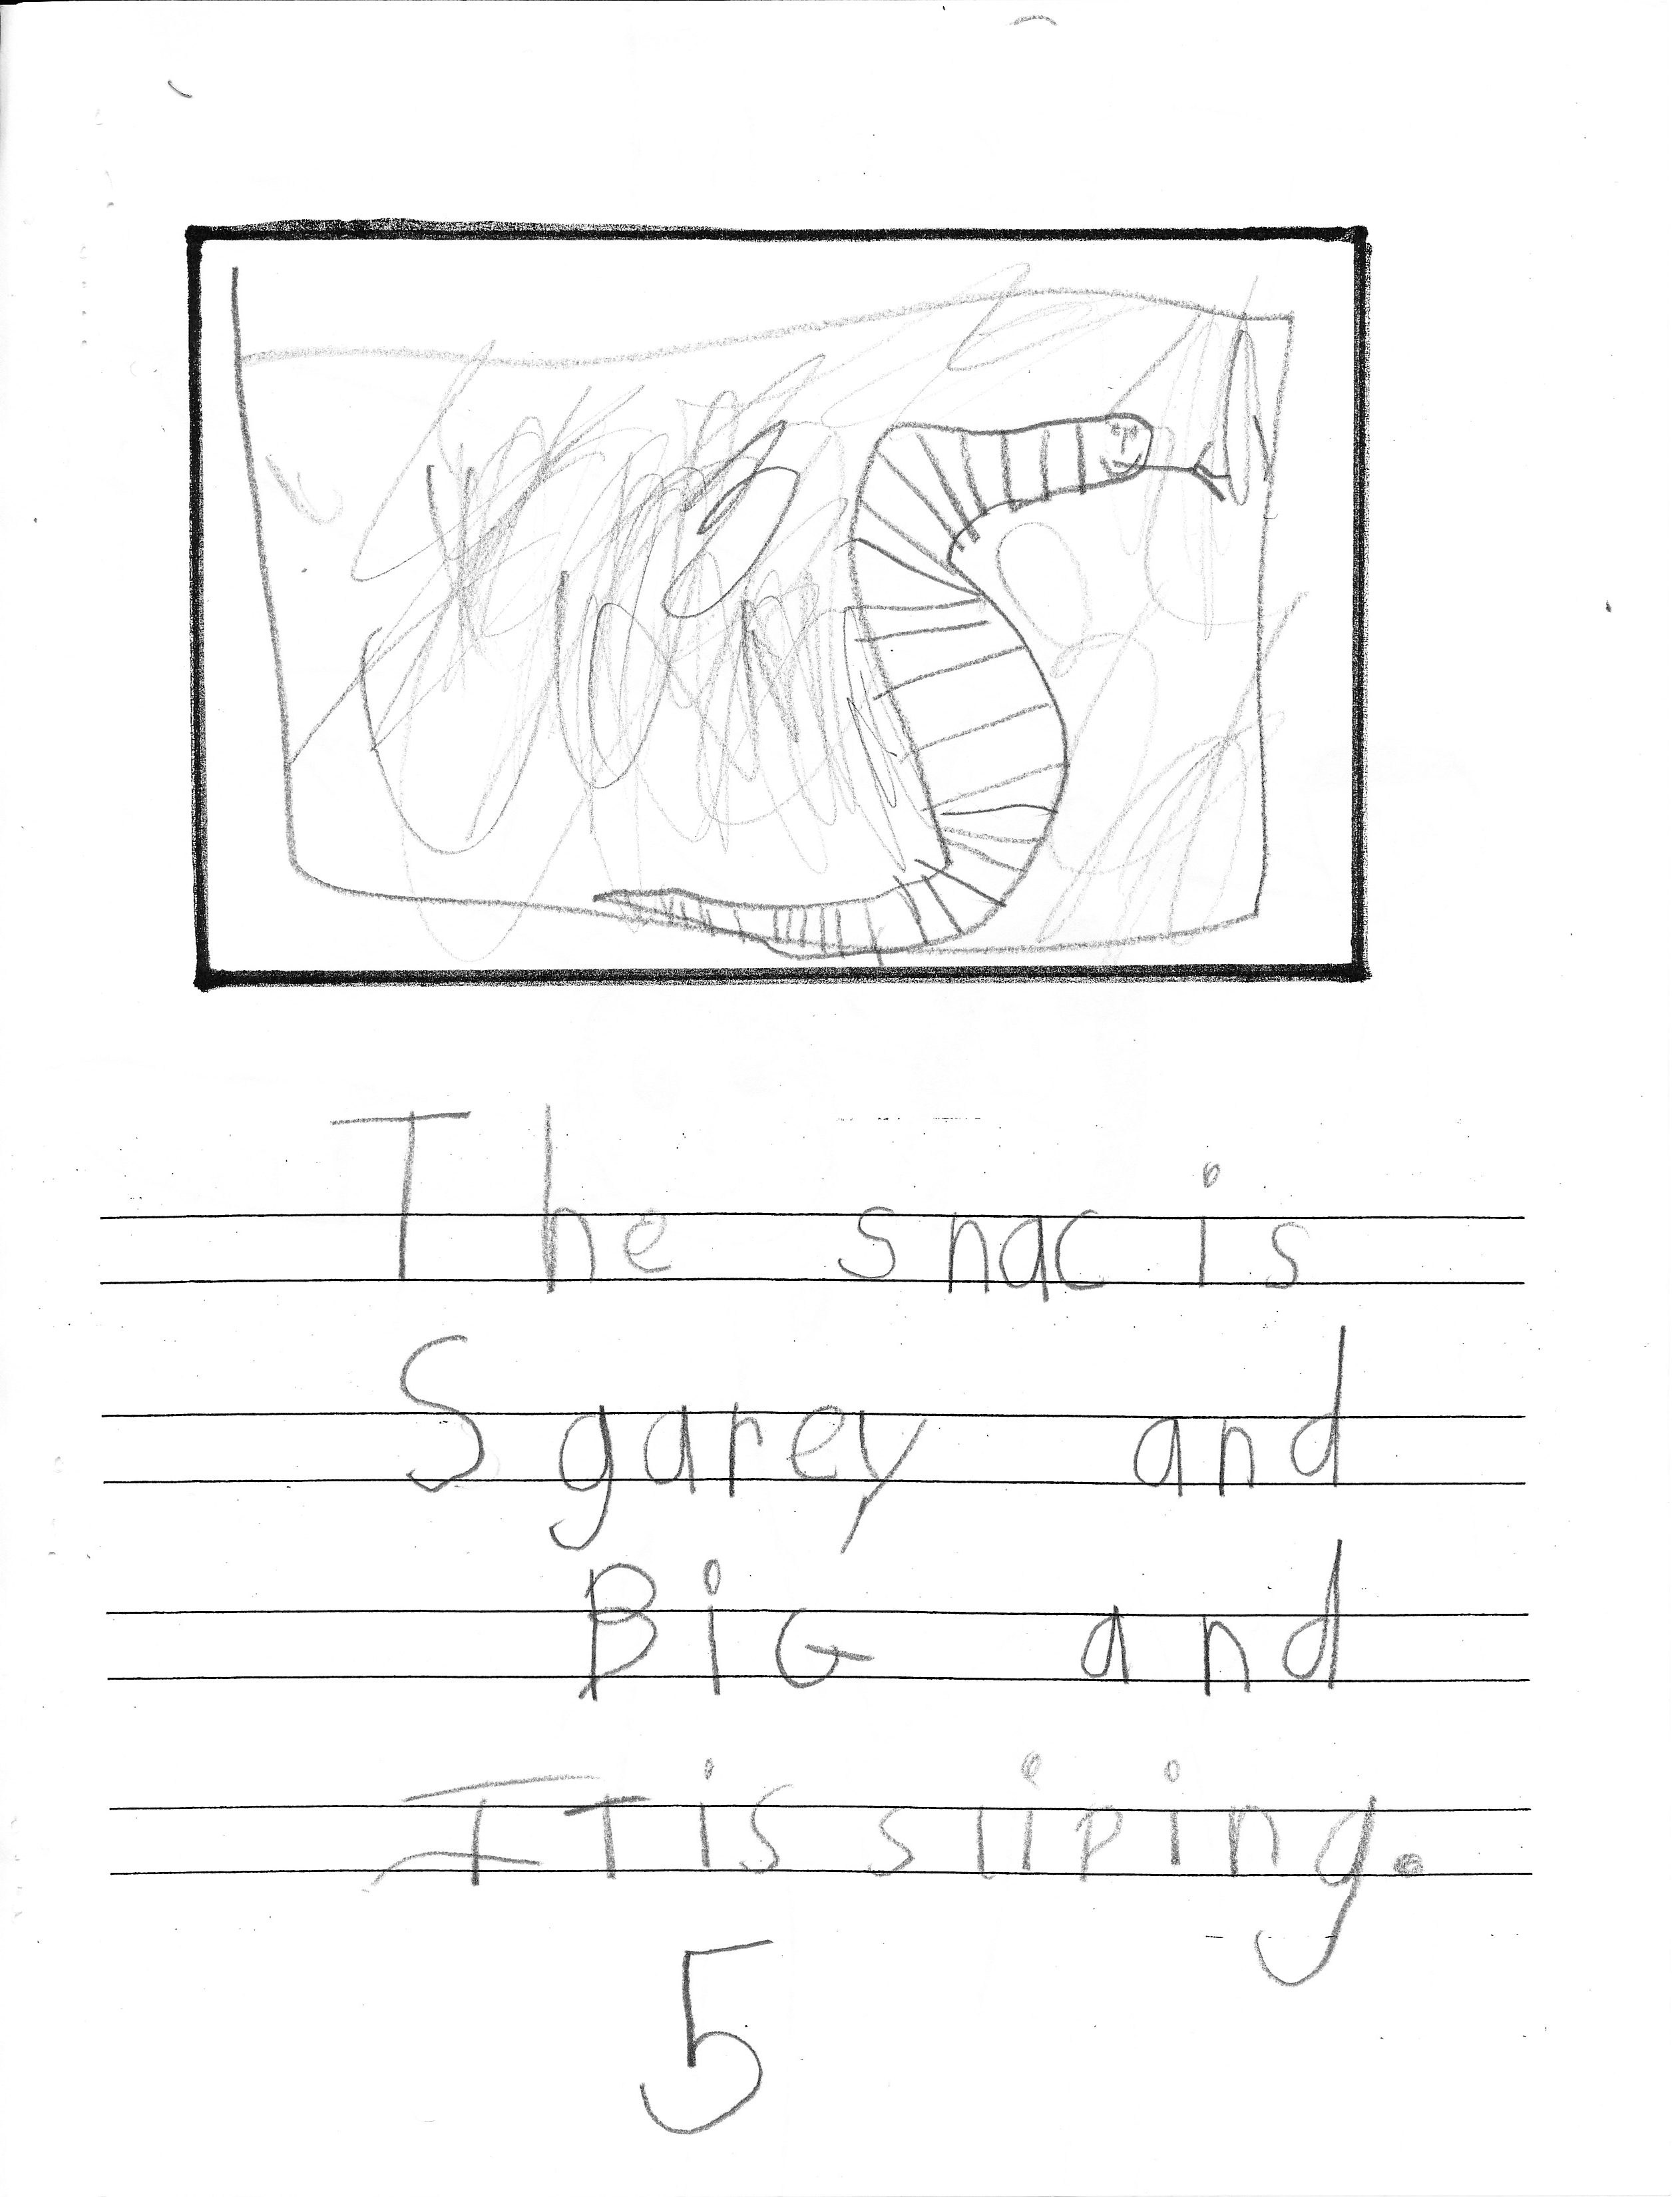 The snac is
Sgarey and
BiG and
IT is sliping.
5